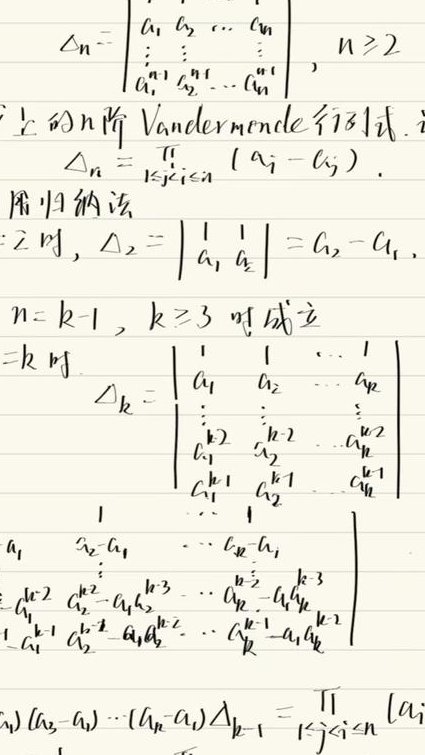 Δn = | a1 a2 … an |
⋮ ⋮ ⋮ , n ≥ 2
a1^{n-1} a2^{n-1} … an^{n-1}
上的n阶 Vandermonde 行列式.
Δn = ∏_{1≤j<i≤n} (ai - aj).
用归纳法
=2时, Δ2 = | 1 1 |
| a1 a2 | = a2 - a1,
n = k-1, k ≥ 3 时成立
=k时
1 1 … 1
Δk = a1 a2 … ak
⋮ ⋮ ⋮
a1^{k-2} a2^{k-2} … ak^{k-2}
a1^{k-1} a2^{k-1} … ak^{k-1}
1 … 1
-a1 a2-a1 … ak-a1
⋮ ⋮
-a1^{k-2} a2^{k-2}-a1a2^{k-3} … ak^{k-2}-a1ak^{k-3}
-a1^{k-1} a2^{k-1}-a1a2^{k-2} … ak^{k-1}-a1ak^{k-2}
a1)(a3-a1)…(ak-a1)Δk-1 = ∏_{1≤j<i≤n} (ai